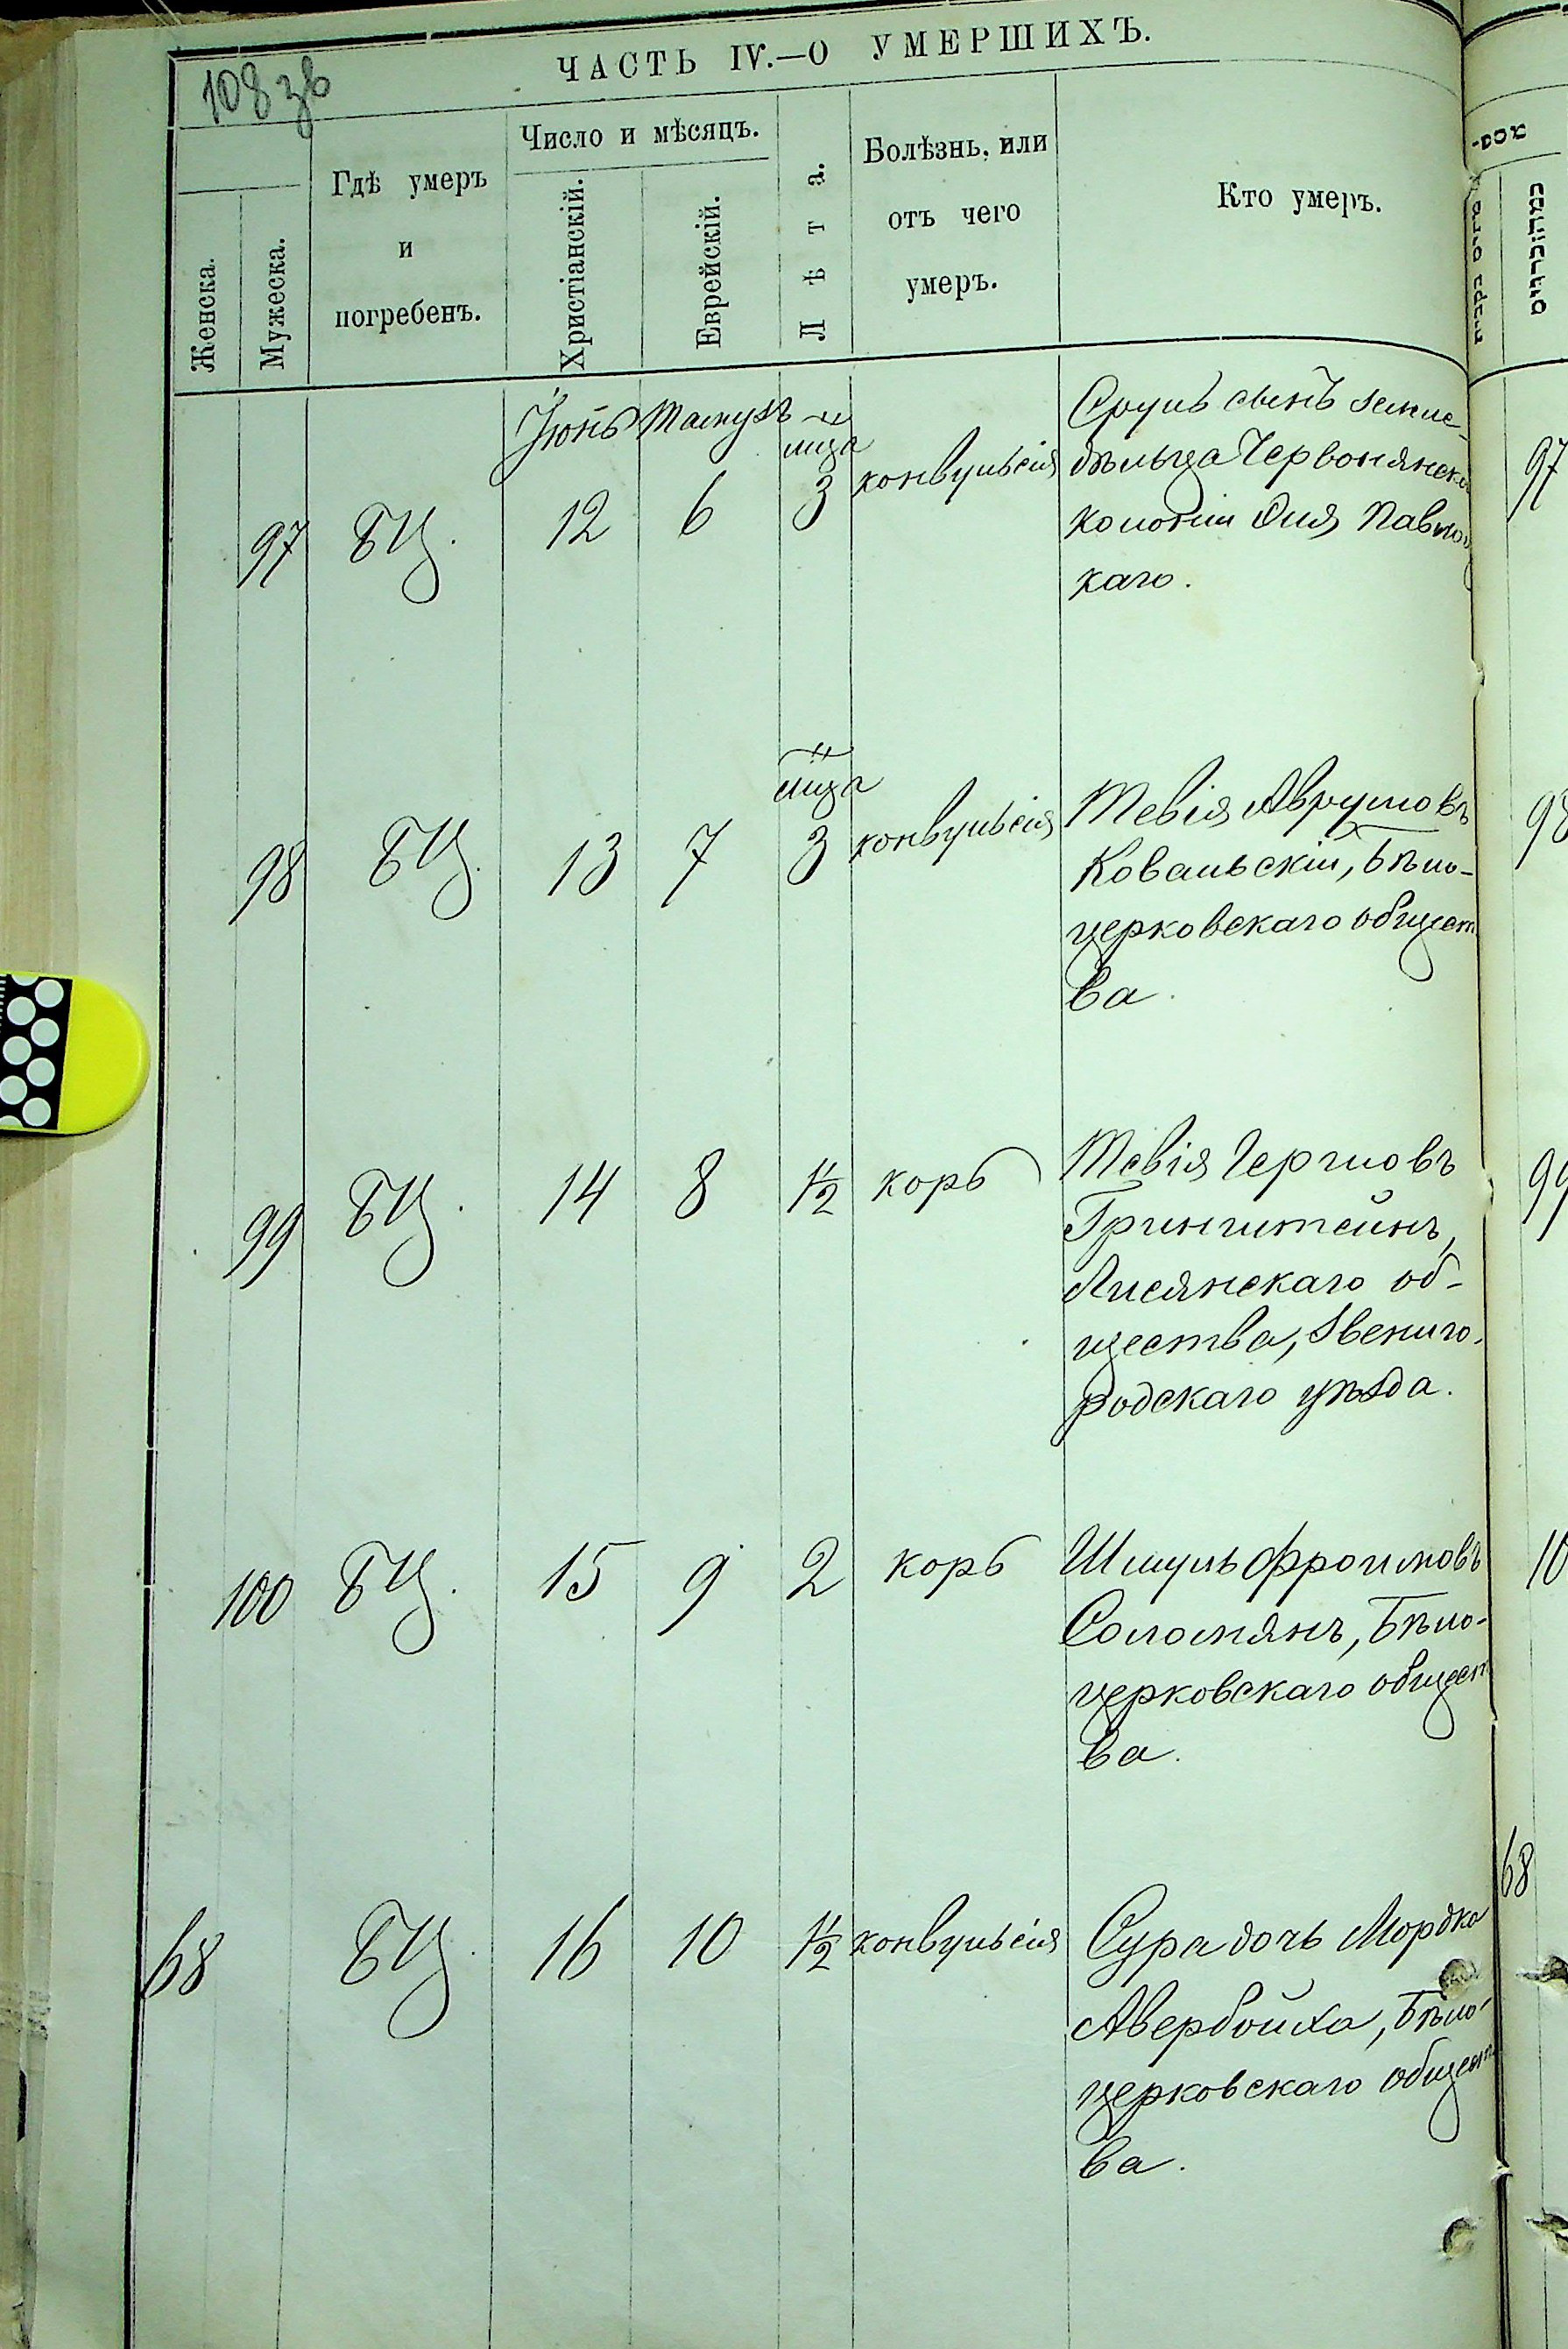 108 зв
ЧАСТЬ IV.—О УМЕРШИХЪ.
Женска.
Мужеска.
Гдѣ умеръ
и
погребенъ.
Число и мѣсяцъ.
Христіанскій.
Еврейскій.
Лѣта.
Болѣзнь, или
отъ чего
умеръ.
Кто умеръ.
Іюнь Тамузъ
97 БЦ. 12 6 мца 3 конвульсія
Сруль сынъ земле-
дѣльца Червонянск
колоніи Эля Павло
каго.
97
98 БЦ. 13 7 мца 3 конвульсія
Тевія Аврумовъ
Ковальскій, Бѣло-
церковскаго общест
ва.
98
99 БЦ. 14 8 1/2 корь
Тевія Гершовъ
Гринштейнъ,
Лисянскаго об-
щества, Звениго-
родскаго уѣзда.
99
100 БЦ. 15 9 2 корь
Шмуль Фроимовъ
Соломянъ, Бѣло-
церковскаго общест
ва.
10
68 БЦ. 16 10 1/2 конвульсія
Сура дочь Мордко
Авербойха, Бѣло-
церковскаго общест
ва.
68